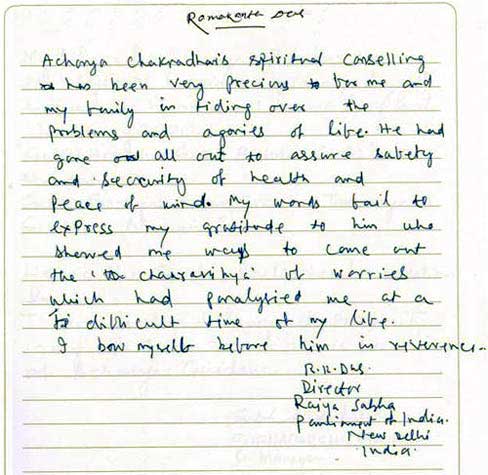 Ramakanta Das
Acharya Chakradhari's spiritual conselling
has been very precious to for me and
my family in tiding over the
problems and agonies of life. He had
gone all out to assure safety
and secrecurity of health and
peace of mind. My words fail to
express my gratitude to him who
showed me ways to come out
the 'chakravihya' of worries
which had paralysied me at a
difficult time of my life.
I bow myself before him in reverence.
R.K.Das.
Director
Rajya Sabha
Parliament of India.
New Delhi
India.